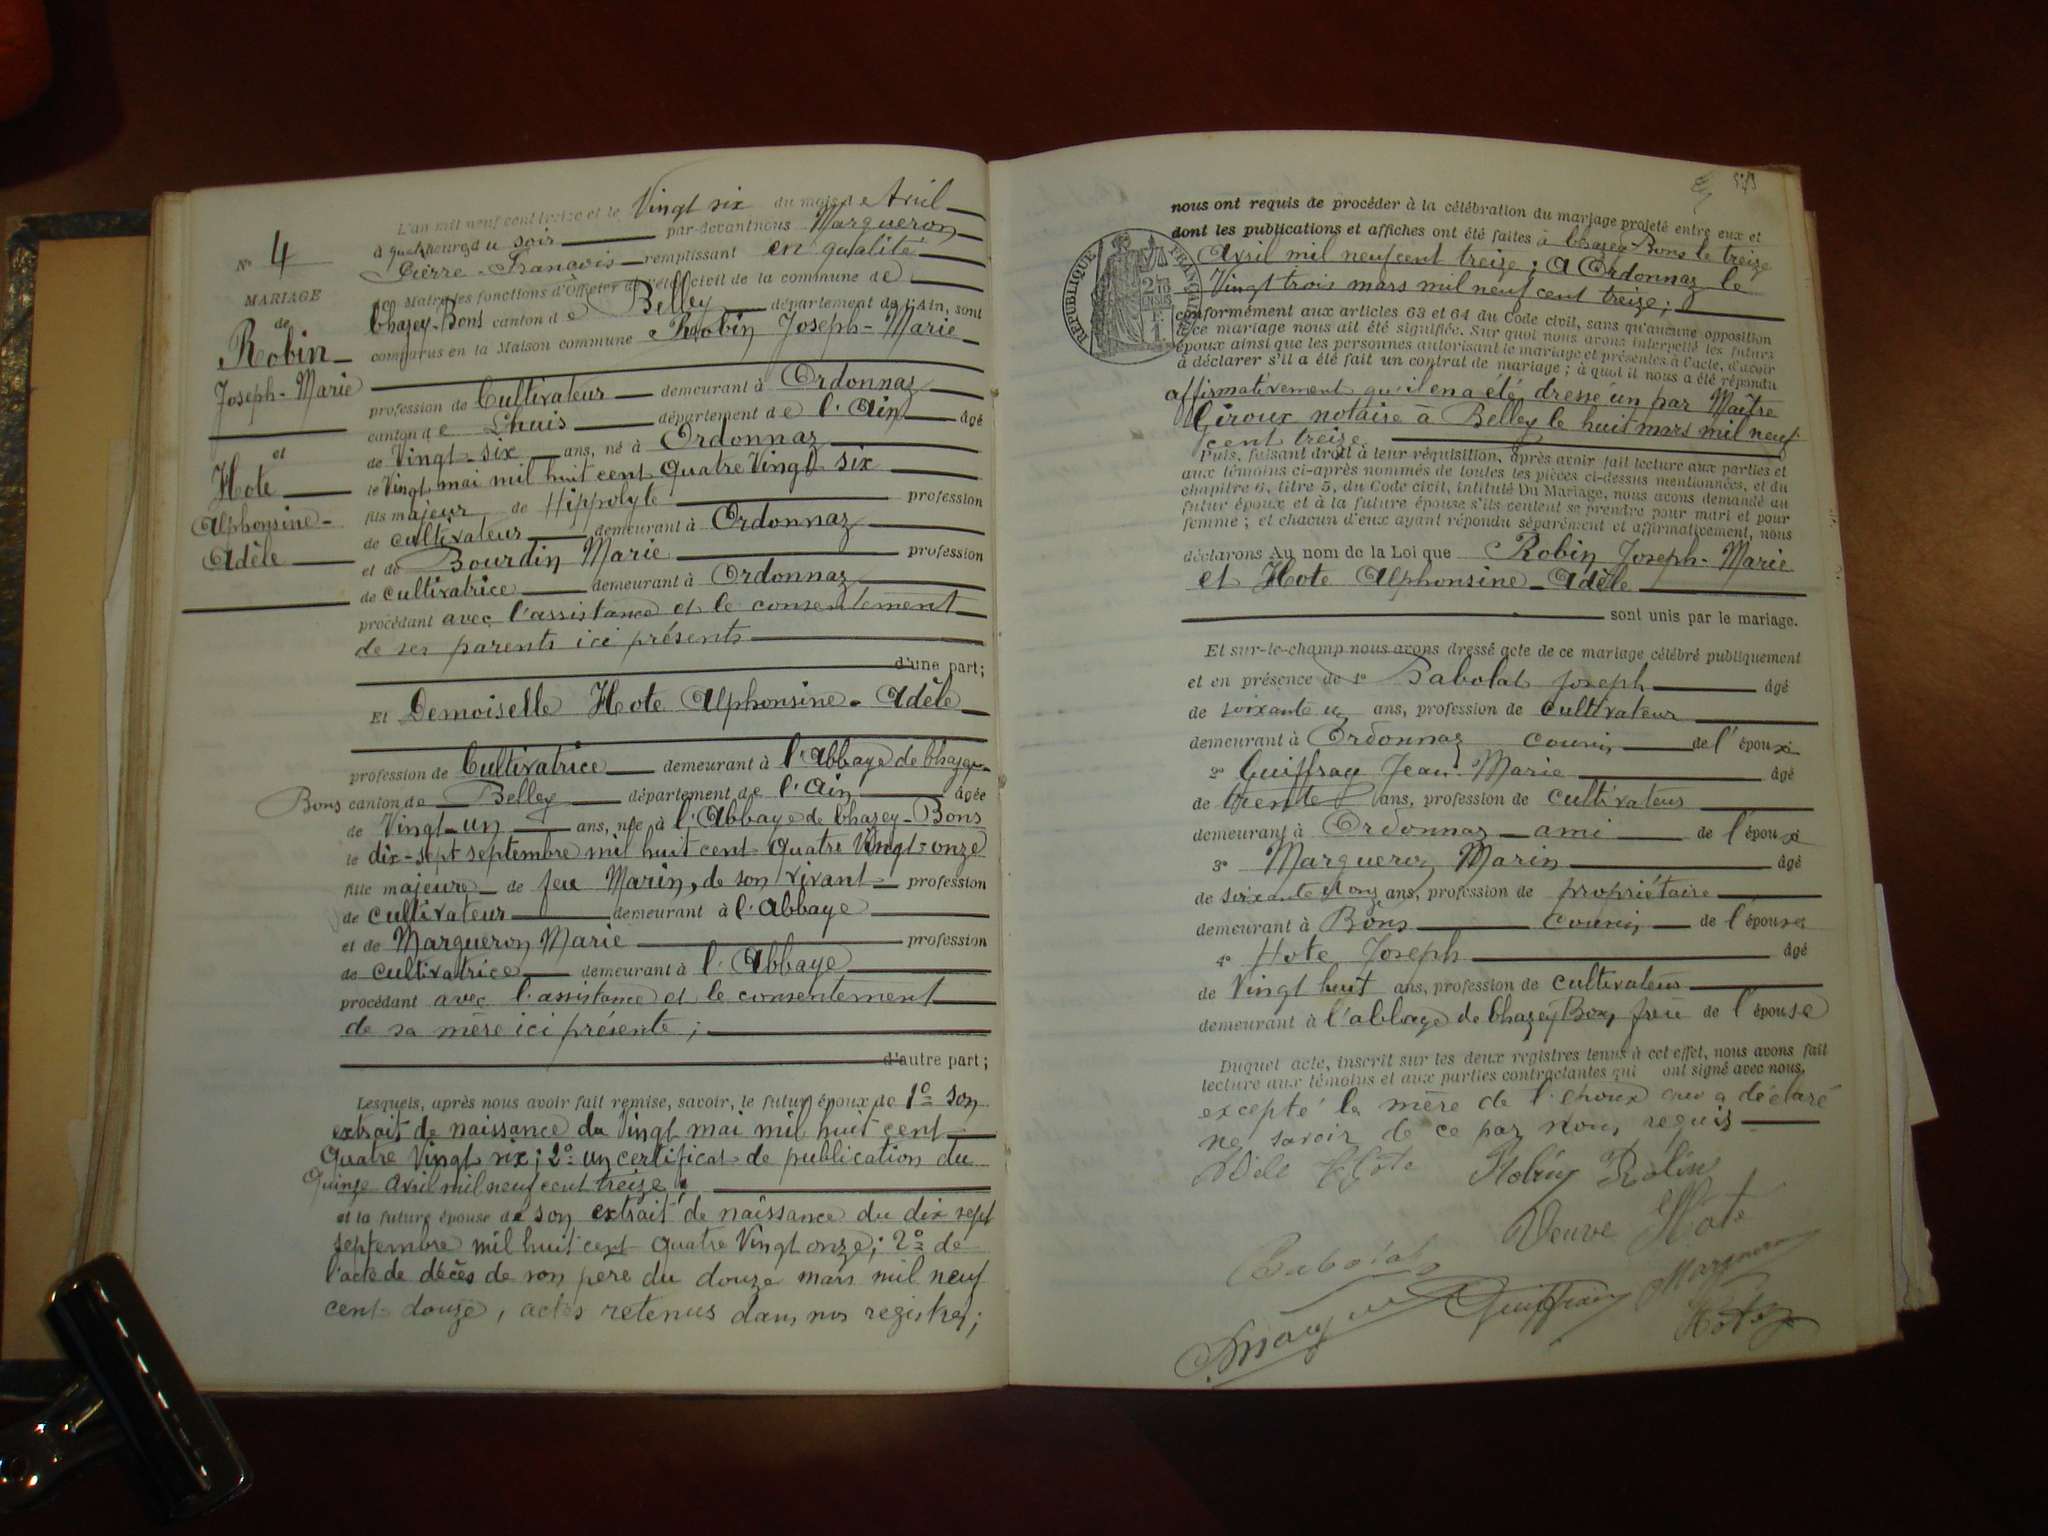 N° 4
MARIAGE
de
Robin
Joseph-Marie
et
Hote
Alphonsine-
Adèle
L'an mil neuf cent treize et le Vingt six du mois de Avril
à quatre heures du soir par-devant nous Marqueron
Pierre-François remplissant en qualité
de Maire les fonctions d'Officier de l'état civil de la commune de
Chazey-Bons canton de Belley département de l'Ain, sont
comparus en la Maison commune Robin Joseph-Marie
profession de Cultivateur demeurant à Ordonnaz
canton de Lhuis département de l'Ain âgé
de Vingt-six ans, né à Ordonnaz
le Vingt mai mil huit cent quatre Vingt six
fils majeur de Hippolyte profession
de cultivateur demeurant à Ordonnaz
et de Bourdin Marie profession
de cultivatrice demeurant à Ordonnaz
procédant avec l'assistance et le consentement
de ses parents ici présents
d'une part;
Et Demoiselle Hote Alphonsine-Adèle
profession de Cultivatrice demeurant à l'Abbaye de Chazey-
Bons canton de Belley département de l'Ain âgée
de Vingt-un ans, née à l'Abbaye de Chazey-Bons
le dix-sept septembre mil huit cent quatre Vingt-onze
fille majeure de feu Marin, de son vivant profession
de cultivateur demeurant à l'Abbaye
et de Marqueron Marie profession
de cultivatrice demeurant à l'Abbaye
procédant avec l'assistance et le consentement
de sa mère ici présente;
d'autre part;
Lesquels, après nous avoir fait remise, savoir, le futur époux de 1° son
extrait de naissance du Vingt mai mil huit cent
quatre Vingt six; 2° un certificat de publication du
Quinze avril mil neuf cent treize;
et la future épouse de son extrait de naissance du dix sept
septembre mil huit cent quatre Vingt onze; 2° de
l'acte de décès de son père du douze mars mil neuf
cent douze, actes retenus dans nos registres;
573
nous ont requis de procéder à la célébration du mariage projeté entre eux et
dont les publications et affiches ont été faites à Chazey-Bons le treize
Avril mil neuf cent treize; A Ordonnaz le
Vingt trois mars mil neuf cent treize;
RÉPUBLIQUE FRANÇAISE
conformément aux articles 63 et 64 du Code civil, sans qu'aucune opposition
à ce mariage nous ait été signifiée. Sur quoi nous avons interpellé les futurs
époux ainsi que les personnes autorisant le mariage et présentes à l'acte, d'avoir
à déclarer s'il a été fait un contrat de mariage; à quoi il nous a été répondu
affirmativement qu'il en a été dressé un par Maître
Giroux notaire à Belley le huit mars mil neuf
cent treize
Puis, faisant droit à leur réquisition, après avoir fait lecture aux parties et
aux témoins ci-après nommés de toutes les pièces ci-dessus mentionnées, et du
chapitre 6, titre 5, du Code civil, intitulé Du Mariage, nous avons demandé au
futur époux et à la future épouse s'ils veulent se prendre pour mari et pour
femme; et chacun d'eux ayant répondu séparément et affirmativement, nous
déclarons Au nom de la Loi que Robin Joseph-Marie
et Hote Alphonsine-Adèle
sont unis par le mariage.
Et sur-le-champ nous avons dressé acte de ce mariage célébré publiquement
et en présence de 1° Babolat Joseph âgé
de soixante un ans, profession de cultivateur
demeurant à Ordonnaz cousin de l'époux
2° Guiffray Jean-Marie âgé
de trente ans, profession de cultivateur
demeurant à Ordonnaz ami de l'époux
3° Marqueron Marin âgé
de soixante et onze ans, profession de propriétaire
demeurant à Bons cousin de l'épouse
4° Hote Joseph âgé
de Vingt huit ans, profession de cultivateur
demeurant à l'abbaye de Chazey Bons frère de l'épouse
Duquel acte, inscrit sur les deux registres tenus à cet effet, nous avons fait
lecture aux témoins et aux parties contractantes qui ont signé avec nous,
excepté la mère de l'époux qui a déclaré
ne savoir de ce par nous requis
Adèle Hôte Robin
Veuve Hote
Babolat Guiffray Marqueron
Hôte